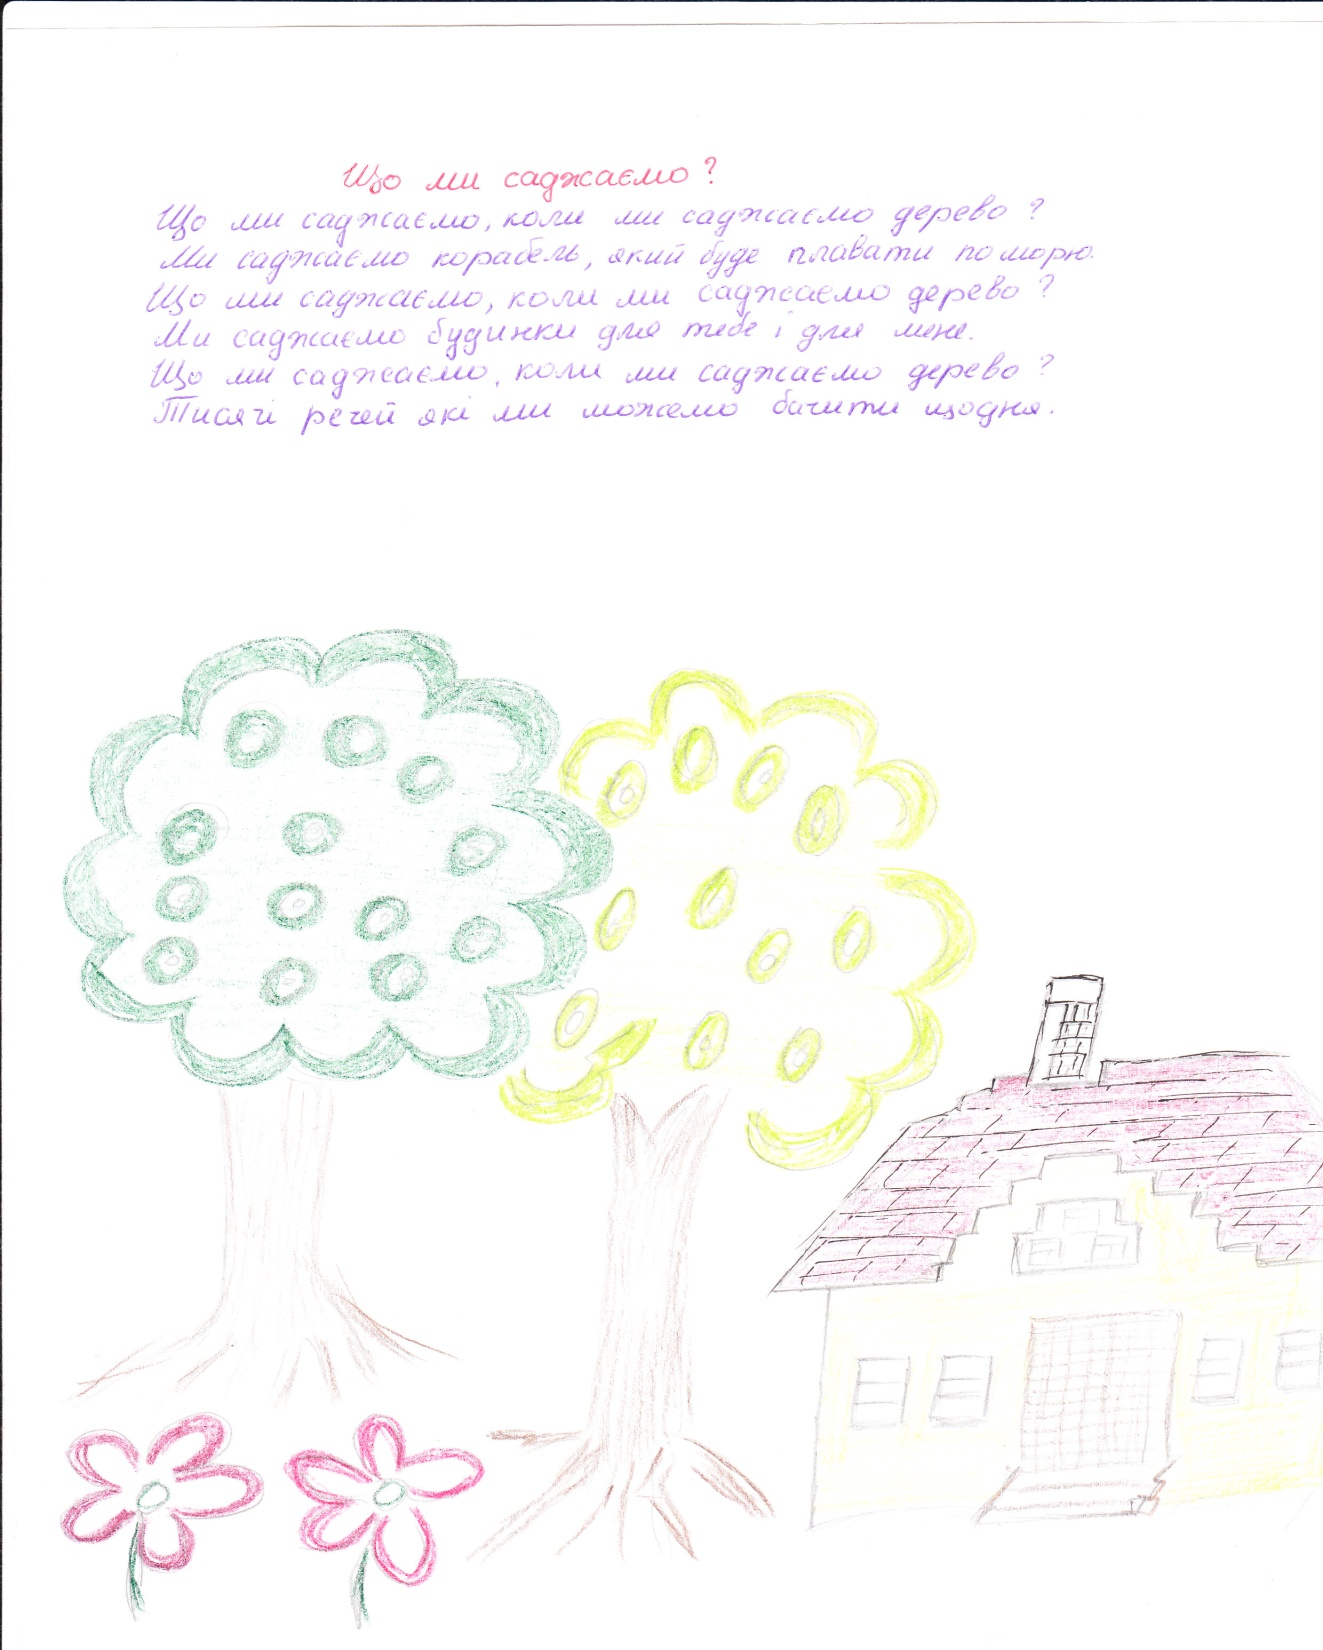 Що ми саджаємо?
Що ми саджаємо, коли ми саджаємо дерево?
Ми саджаємо корабель, який буде плавати по морю.
Що ми саджаємо, коли ми саджаємо дерево?
Ми саджаємо будинки для тебе і для мене.
Що ми саджаємо, коли ми саджаємо дерево?
Тисячі речей які ми можемо бачити щодня.